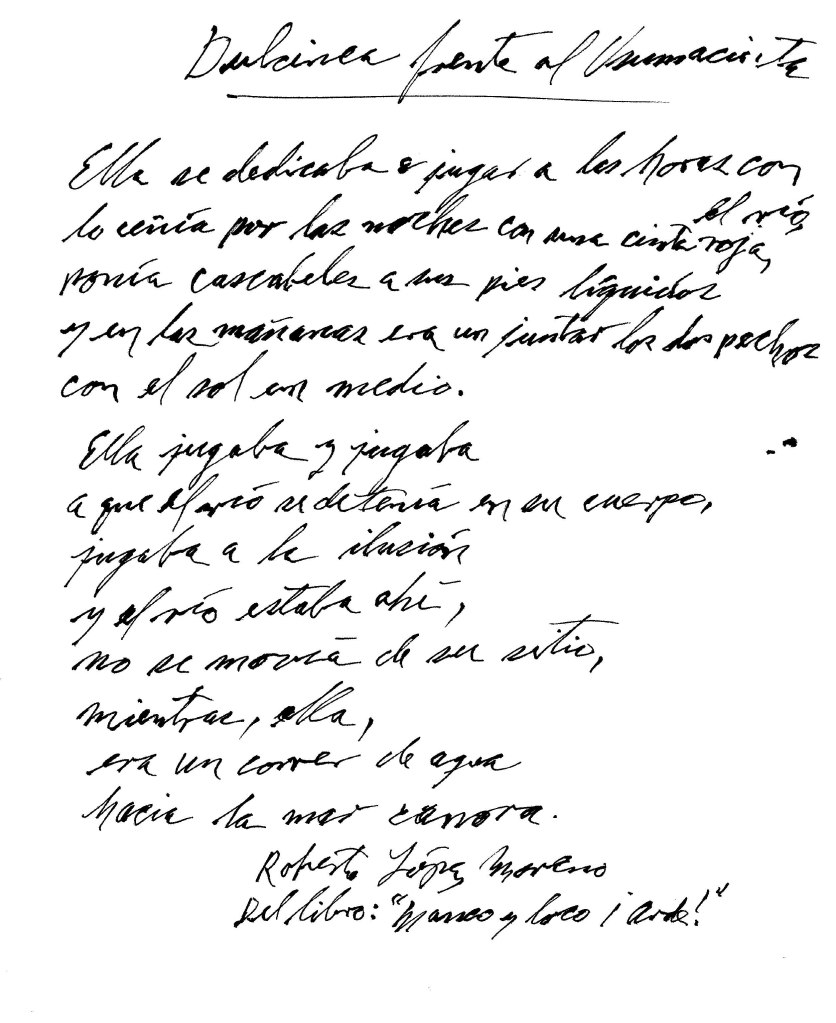 Dulcinea frente al Usumacinta
Ella se dedicaba a jugar a las horas con
el río,
lo ceñía por las noches con una cinta roja,
ponía cascabeles a sus pies líquidos
y en las mañanas era un juntar los dos pechos
con el sol en medio.
Ella jugaba y jugaba
a que el río se detenía en su cuerpo,
jugaba a la ilusión
y el río estaba ahí,
no se movía de su sitio,
mientras, ella,
era un correr de agua
hacia la mar
Roberto López Moreno
Del libro: "Manco y loco ¡Arde!"